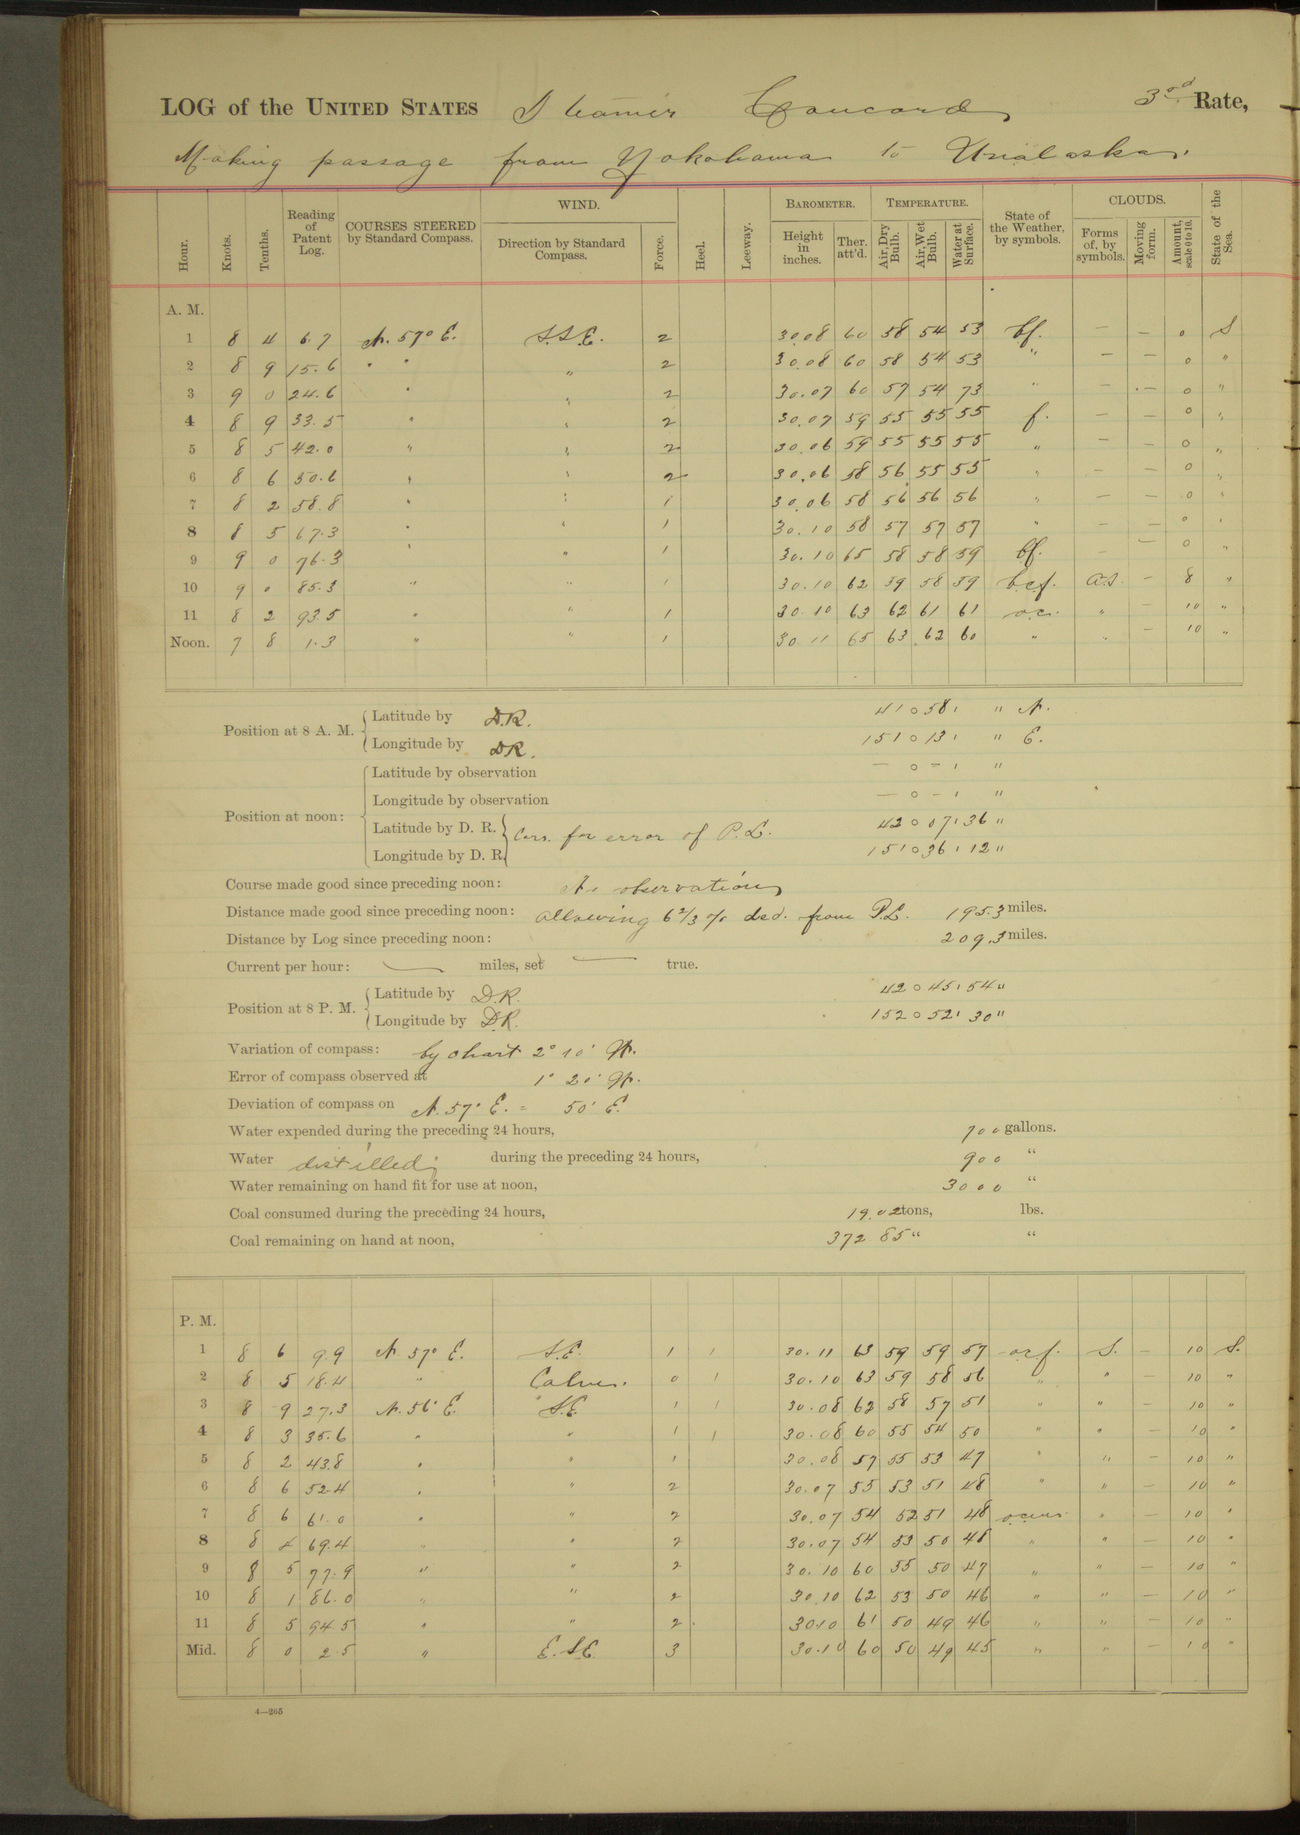 LOG of the UNITED STATES Steamer Concord 3rd Rate,
Making passage from Yokohama to Unalaska.
Hour. Knots. Tenths. Reading of Patent Log. COURSES STEERED by Standard Compass. WIND. Direction by Standard Compass. Force. Heel. Leeway. BAROMETER. Height in inches. Ther. att'd. TEMPERATURE. Air, Dry Bulb. Air, Wet Bulb. Water at Surface. State of the Weather, by symbols. CLOUDS. Forms of, by symbols. Moving form. Amount, scale 0 to 10. State of the Sea.
A. M.
1 8 4 6.7 N. 57° E. S.S.E. 2 30.08 60 58 54 53 bf. — — 0 S
2 8 9 15.6 " " " 2 30.08 60 58 54 53 " — — 0 "
3 9 0 24.6 " " 2 30.07 60 57 54 73 " — — 0 "
4 8 9 33.5 " " 2 30.07 59 55 55 55 f. — — 0 "
5 8 5 42.0 " " 2 30.06 59 55 55 55 " — — 0 "
6 8 6 50.6 " " 2 30.06 58 56 55 55 " — — 0 "
7 8 2 58.8 " " 1 30.06 58 56 56 56 " — — 0 "
8 8 5 67.3 " " 1 30.10 58 57 57 57 " — — 0 "
9 9 0 76.3 " " 1 30.10 65 58 58 59 bf. — — 0 "
10 9 0 85.3 " " 1 30.10 62 59 58 59 bcf. a.s. — 8 "
11 8 2 93.5 " " 1 30.10 63 62 61 61 oc. " — 10 "
Noon. 7 8 1.3 " " 1 30.11 65 63 62 60 " " — 10 "
Position at 8 A. M. Latitude by D.R. 41 ° 58 ' " N.
Longitude by DR. 151 ° 13 ' " E.
Position at noon: Latitude by observation — ° — ' "
Longitude by observation — ° — ' "
Latitude by D. R. Cors. for error of P.L. 42 ° 07 ' 36 "
Longitude by D. R. 151 ° 36 ' 12 "
Course made good since preceding noon: No observations
Distance made good since preceding noon: allowing 6 2/3 % ded. from P.L. 195.3 miles.
Distance by Log since preceding noon: 209.3 miles.
Current per hour: — miles, set — true.
Position at 8 P. M. Latitude by D.R. 42 ° 45 ' 54 "
Longitude by D.R. 152 ° 52 ' 30 "
Variation of compass: by chart 2° 10' W.
Error of compass observed at 1° 20' W.
Deviation of compass on N. 57° E. = 50' E.
Water expended during the preceding 24 hours, 700 gallons.
Water distilled during the preceding 24 hours, 900 "
Water remaining on hand fit for use at noon, 3000 "
Coal consumed during the preceding 24 hours, 19.02 tons, lbs.
Coal remaining on hand at noon, 372 85 " "
P. M.
1 8 6 9.9 N. 57° E. S.E. 1 1 30.11 63 59 59 57 ocf. S. — 10 S.
2 8 5 18.4 " Calm. 0 1 30.10 63 59 58 56 " " — 10 "
3 8 9 27.3 N. 56° E. S.E. 1 1 30.08 62 58 57 51 " " — 10 "
4 8 3 35.6 " " 1 1 30.08 60 55 54 50 " " — 10 "
5 8 2 43.8 " " 1 30.08 57 55 53 47 " " — 10 "
6 8 6 52.4 " " 2 30.07 55 53 51 48 " " — 10 "
7 8 6 61.0 " " 2 30.07 54 52 51 48 " — 10 "
8 8 4 69.4 " " 2 30.07 54 53 50 48 " " — 10 "
9 8 5 77.9 " " 2 30.10 60 55 50 47 " " — 10 "
10 8 1 86.0 " " 2 30.10 62 53 50 46 " " — 10 "
11 8 5 94.5 " " 2 30.10 61 50 49 46 " " — 10 "
Mid. 8 0 2.5 " E.S.E. 3 30.10 60 50 49 45 " " — 10 "
4—265